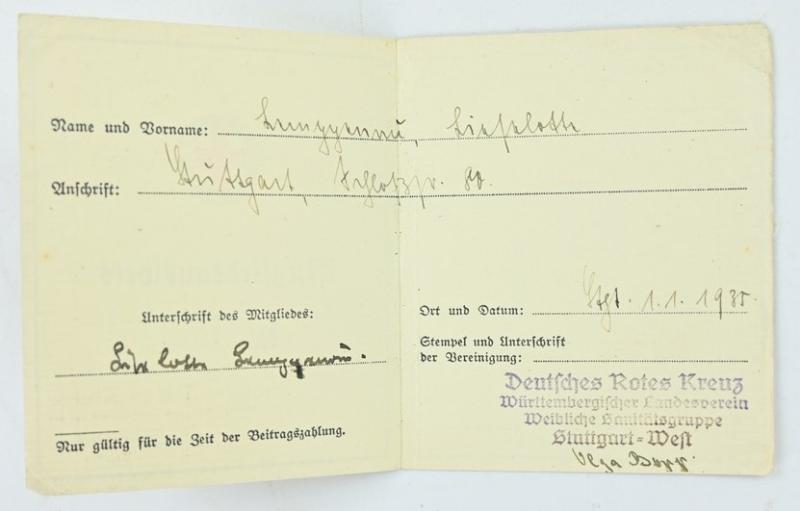 Name und Vorname: Lieselotte
Anschrift: Stuttgart, Schloßstr. 80.
Unterschrift des Mitgliedes:
Liselotte
Nur gültig für die Zeit der Beitragszahlung.
Ort und Datum: Stgt. 1.1.1935.
Stempel und Unterschrift
der Vereinigung:
Deutsches Rotes Kreuz
Württembergischer Landesverein
Weibliche Sanitätsgruppe
Stuttgart-West